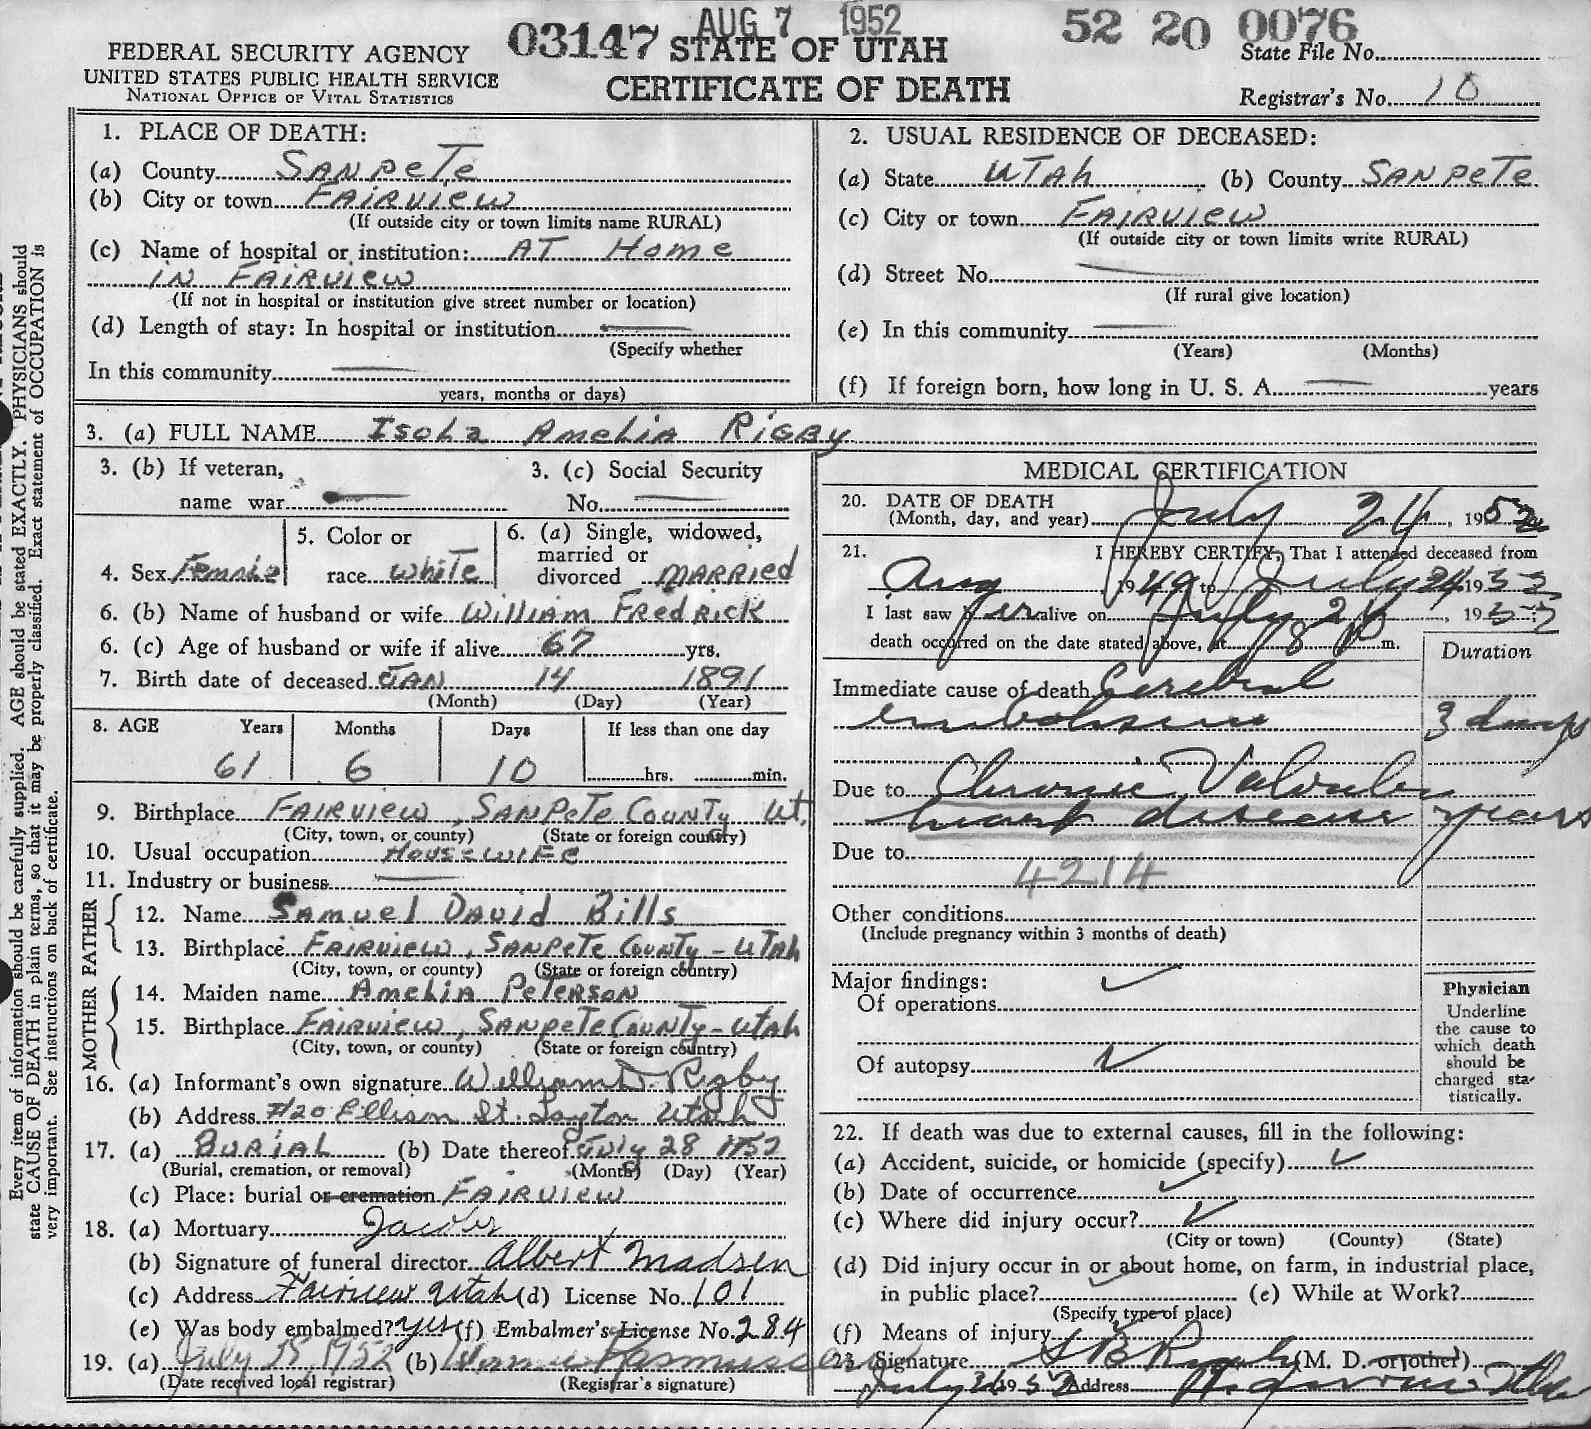 AUG 7 1952
03147
52 20 0076
FEDERAL SECURITY AGENCY
UNITED STATES PUBLIC HEALTH SERVICE
NATIONAL OFFICE OF VITAL STATISTICS
STATE OF UTAH
CERTIFICATE OF DEATH
State File No.
Registrar's No. 10
Every item of information should be carefully supplied. AGE should be stated EXACTLY. PHYSICIANS should
state CAUSE OF DEATH in plain terms, so that it may be properly classified. Exact statement of OCCUPATION is
very important. See instructions on back of certificate.
1. PLACE OF DEATH:
(a) County SANPETE
(b) City or town FAIRVIEW
(If outside city or town limits name RURAL)
(c) Name of hospital or institution: AT Home
IN FAIRVIEW
(If not in hospital or institution give street number or location)
(d) Length of stay: In hospital or institution
(Specify whether
In this community
years, months or days)
2. USUAL RESIDENCE OF DECEASED:
(a) State UTAh (b) County SANPETE
(c) City or town FAIRVIEW
(If outside city or town limits write RURAL)
(d) Street No.
(If rural give location)
(e) In this community
(Years) (Months)
(f) If foreign born, how long in U. S. A. years
3. (a) FULL NAME IsoLa AmeLIA RIGBY
3. (b) If veteran,
name war
3. (c) Social Security
No.
4. Sex Female
5. Color or
race white
6. (a) Single, widowed,
married or
divorced MARRIED
6. (b) Name of husband or wife WILLIAM FREDRICK
6. (c) Age of husband or wife if alive 67 yrs.
7. Birth date of deceased JAN 14 1891
(Month) (Day) (Year)
8. AGE Years Months Days If less than one day
61 6 10 hrs. min.
9. Birthplace FAIRVIEW, SANPETE COUNTY Ut.
(City, town, or county) (State or foreign country)
10. Usual occupation HOUSEWIFE
11. Industry or business
FATHER
12. Name Samuel David Bills
13. Birthplace FAIRVIEW, SANPETE COUNTY - UTAh
(City, town, or county) (State or foreign country)
MOTHER
14. Maiden name AmeLIA PETERSON
15. Birthplace FAIRVIEW, SANPETE COUNTY - UTAh
(City, town, or county) (State or foreign country)
16. (a) Informant's own signature William D. Rigby
(b) Address #20 Ellison St. Layton Utah
17. (a) BURIAL (b) Date thereof July 28 1952
(Burial, cremation, or removal) (Month) (Day) (Year)
(c) Place: burial or cremation FAIRVIEW
18. (a) Mortuary Jacobs
(b) Signature of funeral director Albert Madsen
(c) Address Fairview Utah (d) License No. 101
(e) Was body embalmed? yes (f) Embalmer's License No. 284
19. (a) July 1952 (b) Rasmussen
(Date received local registrar) (Registrar's signature)
MEDICAL CERTIFICATION
20. DATE OF DEATH
(Month, day, and year) July 24, 1952
21. I HEREBY CERTIFY, That I attended deceased from
Aug 1949 to July 24 1952
I last saw her alive on July 24, 1952
death occurred on the date stated above, at 8 P m.
Duration
Immediate cause of death Cerebral
embolism 3 days
Due to Chronic Valvular
heart disease years
Due to
4214
Other conditions
(Include pregnancy within 3 months of death)
Major findings:
Of operations
Of autopsy
Physician
Underline
the cause to
which death
should be
charged sta-
tistically.
22. If death was due to external causes, fill in the following:
(a) Accident, suicide, or homicide (specify)
(b) Date of occurrence
(c) Where did injury occur?
(City or town) (County) (State)
(d) Did injury occur in or about home, on farm, in industrial place,
in public place? (e) While at Work?
(Specify type of place)
(f) Means of injury
23. Signature (M. D. or other)
July 1952 Address